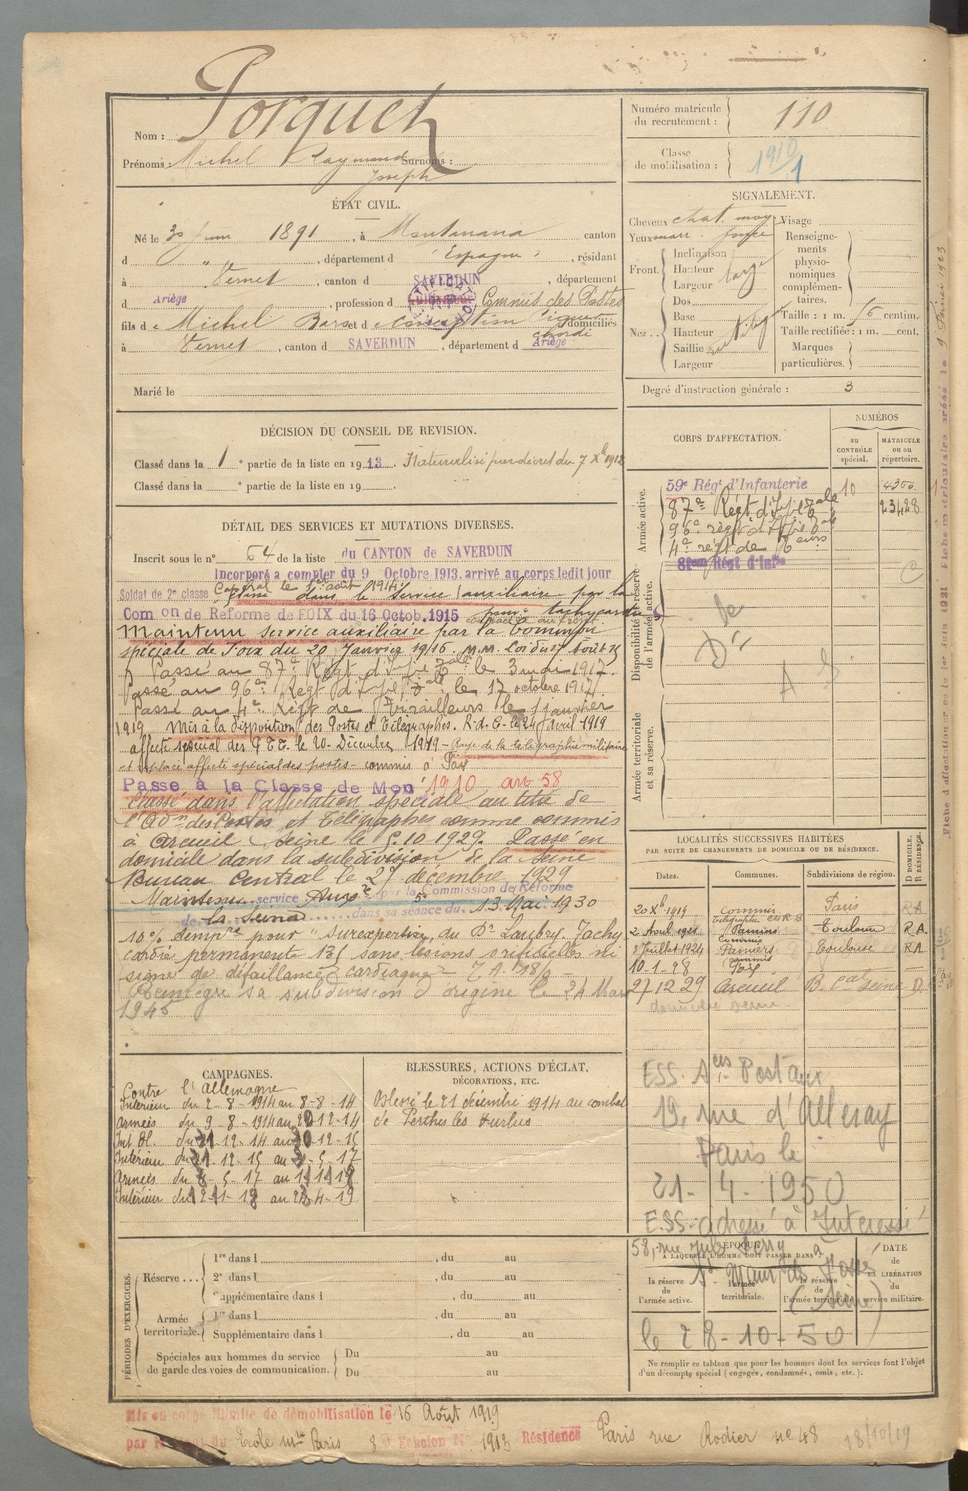 Nom : Porquet
Prénoms : Michel Raymond Joseph Surnoms :
Numéro matricule du recrutement : 110
Classe de mobilisation : 1910/1
ÉTAT CIVIL.
Né le 30 Juin 1891, à Montmana canton
d " " , département d (Espagne), résidant
à Vernet, canton d SAVERDUN, département
d Ariège, profession d Commis des Postes
fils d e Michel Bars et d e conception domiciliés
à Vernet, canton d SAVERDUN, département d Ariège
Marié le
SIGNALEMENT.
Cheveux chat. moy.
Yeux marr. foncé
Front. Inclinaison
Hauteur large
Largeur
Nez .. Dos
Base
Hauteur
Saillie
Largeur
Visage
Renseignements physionomiques complémentaires.
Taille : 1 m. 56 centim.
Taille rectifiée : 1 m. cent.
Marques particulières.
Degré d'instruction générale : 3
DÉCISION DU CONSEIL DE REVISION.
Classé dans la 1 e partie de la liste en 1913. Naturalisé par décret du 7 Xbre 1912
Classé dans la e partie de la liste en 19
DÉTAIL DES SERVICES ET MUTATIONS DIVERSES.
Inscrit sous le n° 54 de la liste du CANTON de SAVERDUN
Incorporé à compter du 9 Octobre 1913, arrivé au corps ledit jour
Soldat de 2e classe Caporal le 1er août 1914.
dans le service auxiliaire par la
Com on de Réforme de FOIX du 16 Octob. 1915 pour tachycardie
contracté au front
Maintenu service auxiliaire par la Commion
spéciale de Foix du 20 Janvier 1916.
Passé au 87e Régt d'Inf.ie Cale le 3 mai 1917.
Passé au 96e Régt d'Inf Cale le 17 octobre 1917.
Passé au 4e Régt de Tirailleurs le 1 janvier
1919 Mis à la disposition des Postes et Télégraphes. R.d.C. le 24 avril 1919
affecté spécial des P.T.T. le 20 Décembre 1919 - de la télégraphie militaire
et replacé affecté spécial des postes - commis à
Passé à la Classe de Mon 1910 art 58
Classé dans l'affectation spéciale au titre de
l'Adon des Postes et Télégraphes comme commis
à Arcueil Seine le 5.10 1929. Passé en
domicile dans la subdivision de la Seine
Bureau Central le 27 décembre 1929
Maintenu service Auxre par la Commission de Réforme
de la Seine dans sa séance du 13 Mai 1930
10% temp.re pour "Surexpertise du Dr Laubry. Tachy
cardie permanente 135 sans lésions orificielles ni
signe de défaillance cardiaque -
Réintègre sa subdivision d'origine le 24 Mars
1945
CORPS D'AFFECTATION.
NUMÉROS
au CONTRÔLE spécial.
MATRICULE ou au répertoire.
Armée active.
59e Régt d'Infanterie 10 4300
87e Régt d'Inf.ie Cale 23428
96e régt d'Inf.ie Cale
4e régt de Teurs
81em Régt d'Infie
Disponibilité et réserve de l'armée active.
Armée territoriale et sa réserve.
LOCALITÉS SUCCESSIVES HABITÉES
PAR SUITE DE CHANGEMENTS DE DOMICILE OU DE RÉSIDENCE.
Dates. Communes. Subdivisions de région. D DOMICILE. R RÉSIDENCE.
20 Xb 1919 Commis Paris R.A
2 Avril 1921 Pamiers Toulouse R.A.
3 Juillet 1924 Commis Pamiers Toulouse R.A
10-1-28 commis
27 12 29 Arcueil B. Cal Seine D.
ESS. Aces Postaux
19, rue d'Alleray
Paris le
21-4-1950
ESS. adressé à Intéressé
58, rue Jules Ferry à
St Maur des Fossés
(Seine)
le 28-10-50
CAMPAGNES.
Contre l'Allemagne
Intérieur du 2-8-1914 au 8-8-14
Armées du 9-8-1914 au 20-12-14
Int Bl. du 21 12-14 au 20-12-15
Intérieur du 21 12-15 au 2-5-17
Armées du 3-5-17 au 11 11 18
Intérieur du 12 11-18 au 23-4-19
BLESSURES, ACTIONS D'ÉCLAT,
DÉCORATIONS, ETC.
Blessé le 21 décembre 1914 au combat
de Perthes les Hurlus
ÉPOQUE
À LAQUELLE L'HOMME DOIT PASSER DANS :
la réserve de l'armée active.
l'armée territoriale.
la réserve de l'armée territoriale.
DATE de LIBÉRATION du service militaire.
Ne remplir ce tableau que pour les hommes dont les services font l'objet
d'un décompte spécial (engagés, condamnés, omis, etc.).
PÉRIODES D'EXERCICES.
Réserve ... 1re dans l , du au
2e dans l , du au
Supplémentaire dans l , du au
Armée territoriale. 1re dans l , du au
Supplémentaire dans l , du au
Spéciales aux hommes du service de garde des voies de communication. Du au
Du au
Mis en congé illimité de démobilisation le 16 Août 1919
par Ecole mre Paris 8e Echelon N° 1913 Résidence Paris rue Rodier no 48 18/10/19